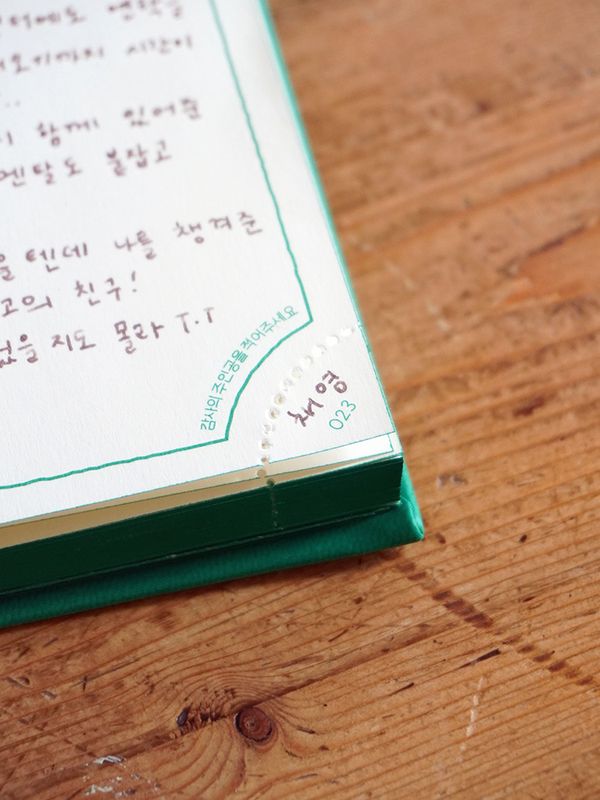 연락을
오기까지 시간이
..
함께 있어준
멘탈도 붙잡고
텐데 나를 챙겨준
친구!
없을지도 몰라 T.T
감사의 주인공을 적어주세요
채영
023